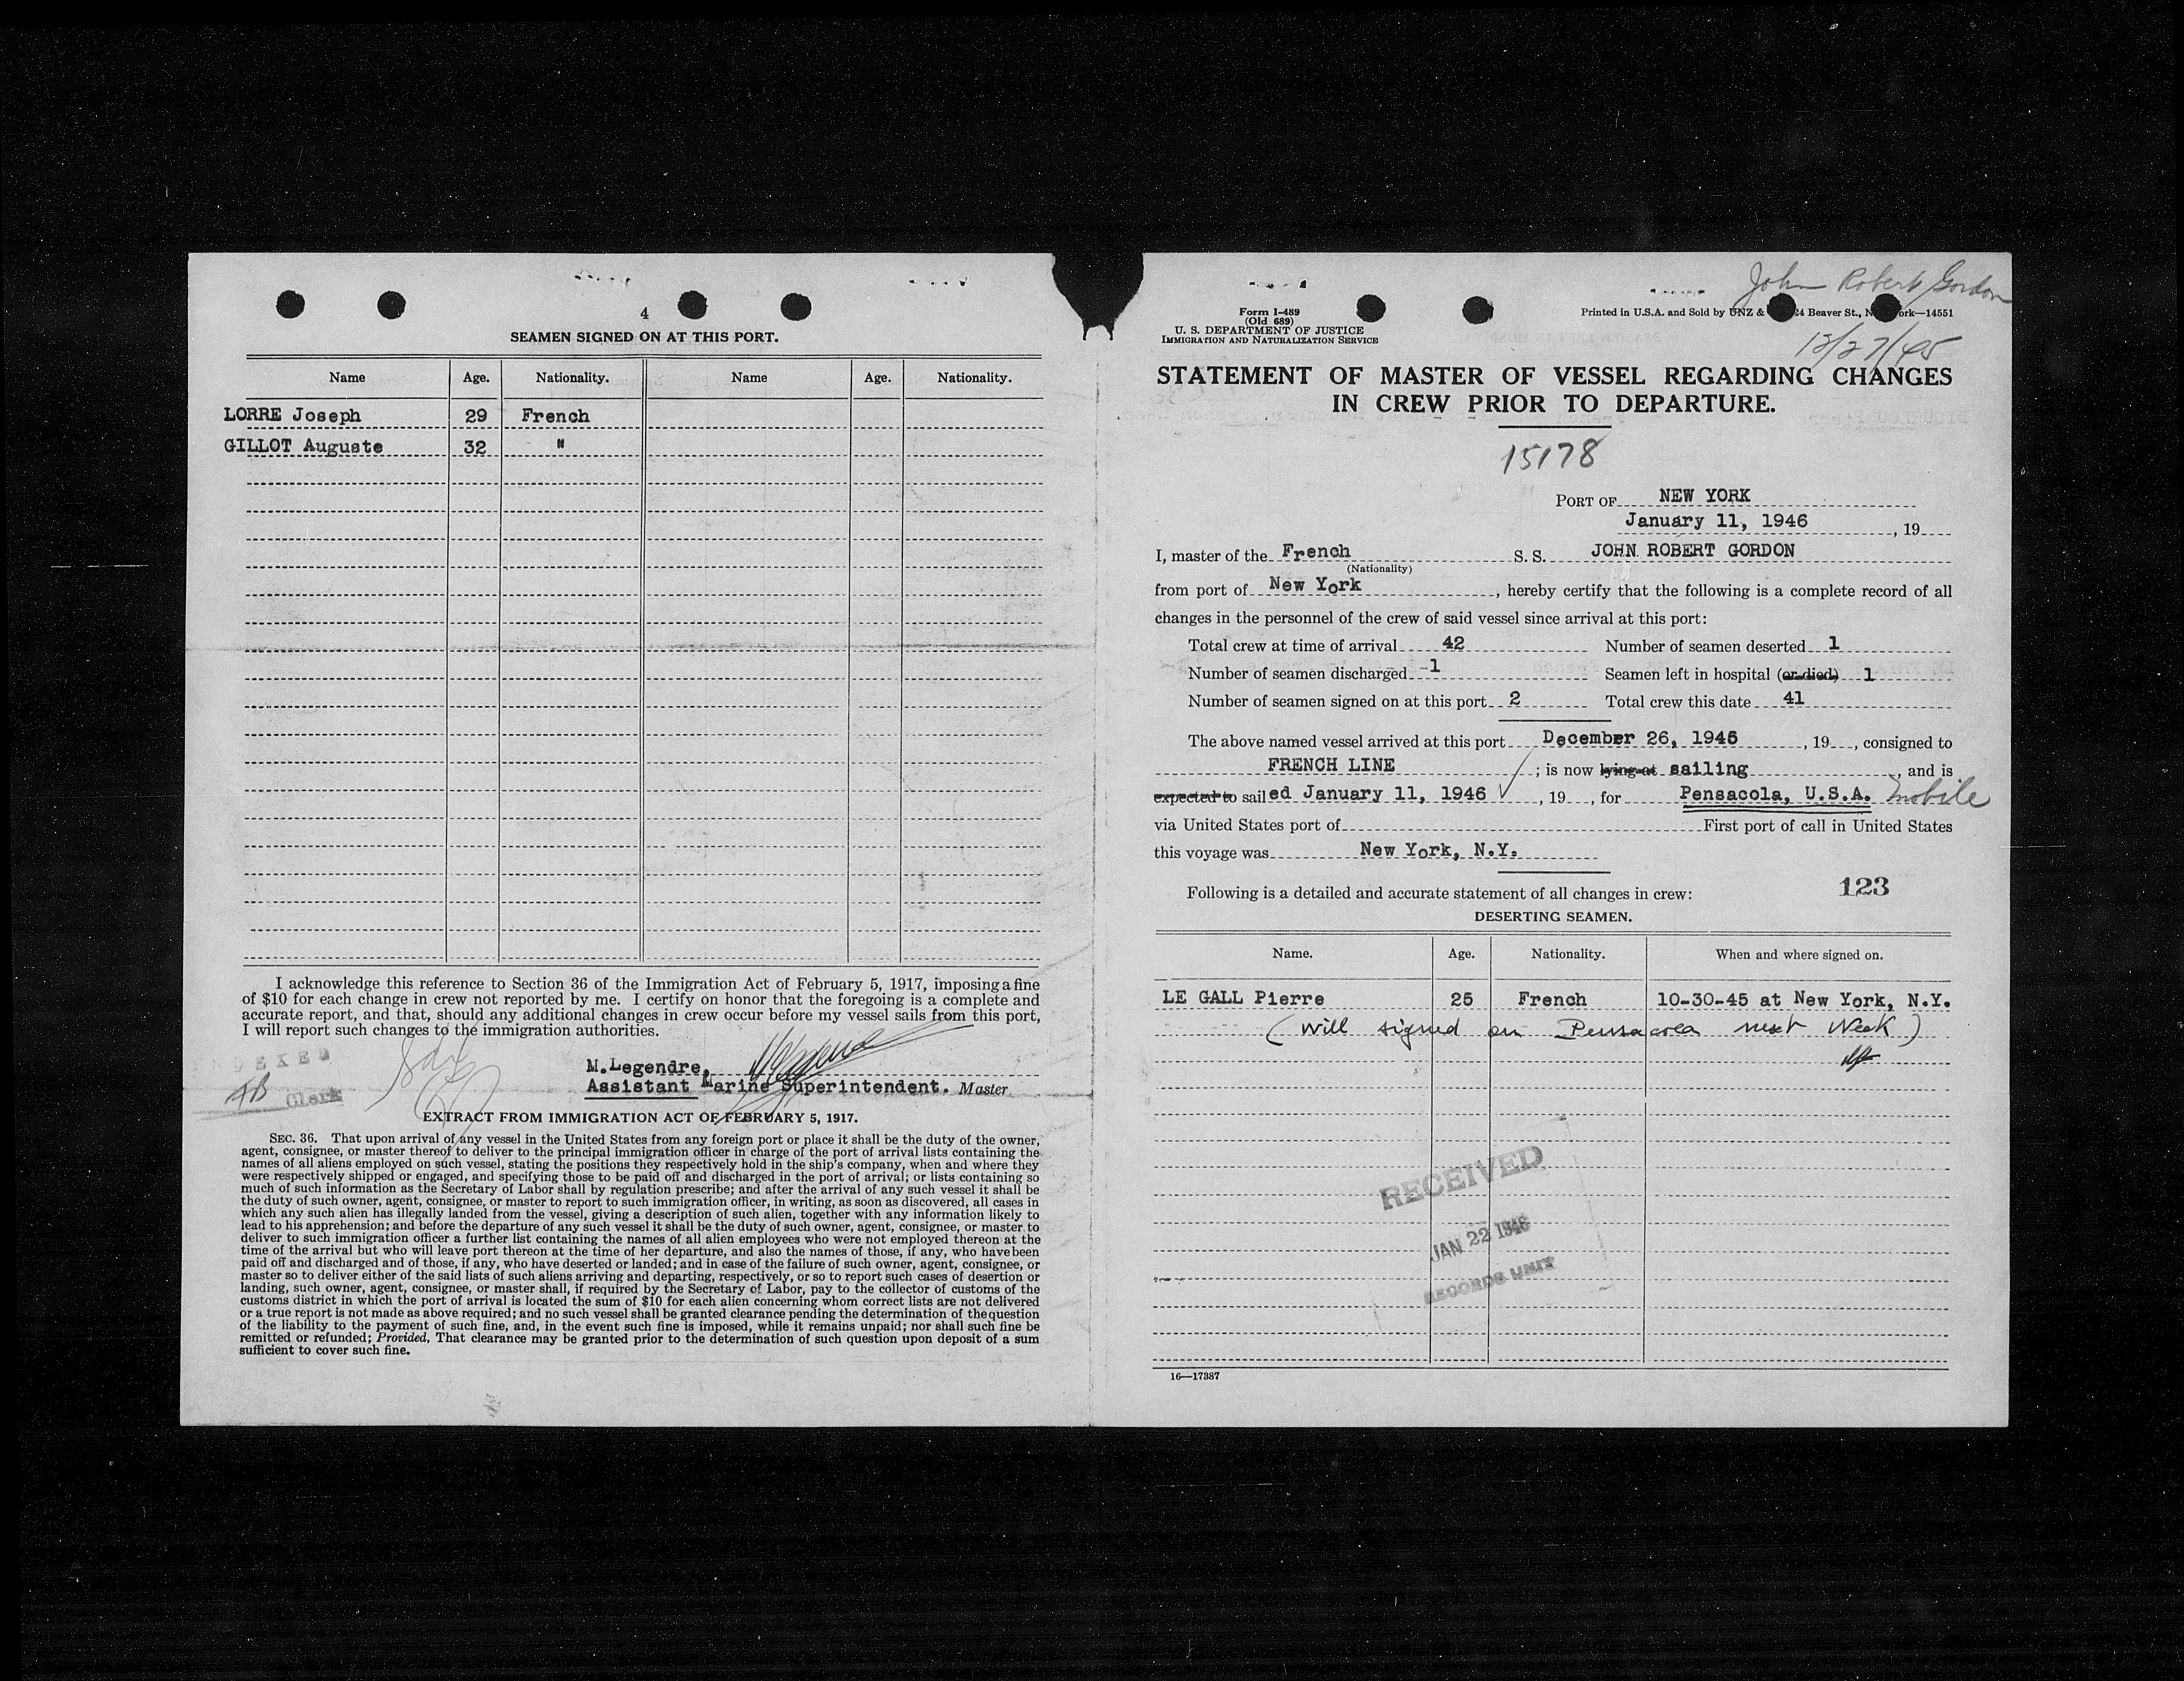 4
SEAMEN SIGNED ON AT THIS PORT.
Name Age. Nationality. Name Age. Nationality.
LORRE Joseph 29 French
GILLOT Auguste 32 "
I acknowledge this reference to Section 36 of the Immigration Act of February 5, 1917, imposing a fine
of $10 for each change in crew not reported by me. I certify on honor that the foregoing is a complete and
accurate report, and that, should any additional changes in crew occur before my vessel sails from this port,
I will report such changes to the immigration authorities.
M.Legendre,
Assistant Marine Superintendent. Master
AB Clerk
EXTRACT FROM IMMIGRATION ACT OF FEBRUARY 5, 1917.
SEC. 36. That upon arrival of any vessel in the United States from any foreign port or place it shall be the duty of the owner,
agent, consignee, or master thereof to deliver to the principal immigration officer in charge of the port of arrival lists containing the
names of all aliens employed on such vessel, stating the positions they respectively hold in the ship's company, when and where they
were respectively shipped or engaged, and specifying those to be paid off and discharged in the port of arrival; or lists containing so
much of such information as the Secretary of Labor shall by regulation prescribe; and after the arrival of any such vessel it shall be
the duty of such owner, agent, consignee, or master to report to such immigration officer, in writing, as soon as discovered, all cases in
which any such alien has illegally landed from the vessel, giving a description of such alien, together with any information likely to
lead to his apprehension; and before the departure of any such vessel it shall be the duty of such owner, agent, consignee, or master to
deliver to such immigration officer a further list containing the names of all alien employees who were not employed thereon at the
time of the arrival but who will leave port thereon at the time of her departure, and also the names of those, if any, who have been
paid off and discharged and of those, if any, who have deserted or landed; and in case of the failure of such owner, agent, consignee, or
master so to deliver either of the said lists of such aliens arriving and departing, respectively, or so to report such cases of desertion or
landing, such owner, agent, consignee, or master shall, if required by the Secretary of Labor, pay to the collector of customs of the
customs district in which the port of arrival is located the sum of $10 for each alien concerning whom correct lists are not delivered
or a true report is not made as above required; and no such vessel shall be granted clearance pending the determination of the question
of the liability to the payment of such fine, and, in the event such fine is imposed, while it remains unpaid; nor shall such fine be
remitted or refunded; Provided, That clearance may be granted prior to the determination of such question upon deposit of a sum
sufficient to cover such fine.
John Robert Gordon
12/27/45
Form I-489
(Old 689)
U. S. DEPARTMENT OF JUSTICE
IMMIGRATION AND NATURALIZATION SERVICE
Printed in U.S.A. and Sold by UNZ & 24 Beaver St., N ork—14551
STATEMENT OF MASTER OF VESSEL REGARDING CHANGES
IN CREW PRIOR TO DEPARTURE.
15178
PORT OF NEW YORK
January 11, 1946, 19
I, master of the French S. S. JOHN ROBERT GORDON
(Nationality)
from port of New York, hereby certify that the following is a complete record of all
changes in the personnel of the crew of said vessel since arrival at this port:
Total crew at time of arrival 42 Number of seamen deserted 1
Number of seamen discharged -1 Seamen left in hospital (or died) 1
Number of seamen signed on at this port 2 Total crew this date 41
The above named vessel arrived at this port December 26, 1945, 19, consigned to
FRENCH LINE ; is now lying at sailing, and is
expected to sailed January 11, 1946, 19, for Pensacola, U.S.A. Mobile
via United States port of First port of call in United States
this voyage was New York, N.Y.
Following is a detailed and accurate statement of all changes in crew: 123
DESERTING SEAMEN.
Name. Age. Nationality. When and where signed on.
LE GALL Pierre 25 French 10-30-45 at New York, N.Y.
(will signed on Pensacola next Week)
RECEIVED
JAN 22 1946
RECORDS UNIT
16—17387